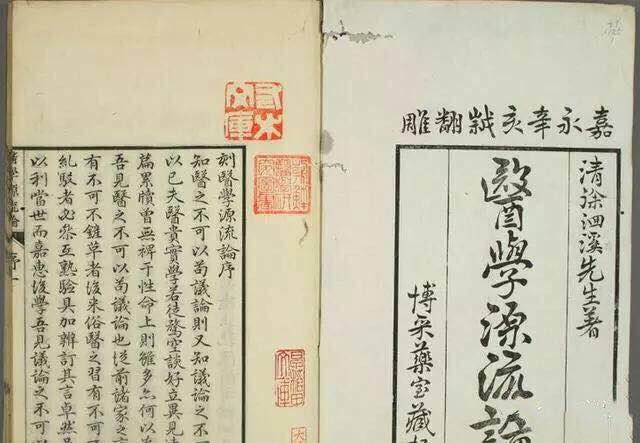 嘉永辛亥翻雕
清徐洄溪先生著
醫學源流論
博采藥室藏
刻醫學源流論序
知醫之不可以苟議論則又知議論之不
以已夫醫貴實學若徒騖空談好立異見
篇累牘曾無裨于性命上則雖多亦何以
吾見醫之不可以苟議論也從前諸家之言
有不可不雖草者後來俗醫之習有不可
糺駁者必參互熟驗具加辨訂其言卓然
以利當世而嘉惠後學吾見議論之不可以
醫學源流論 序 一